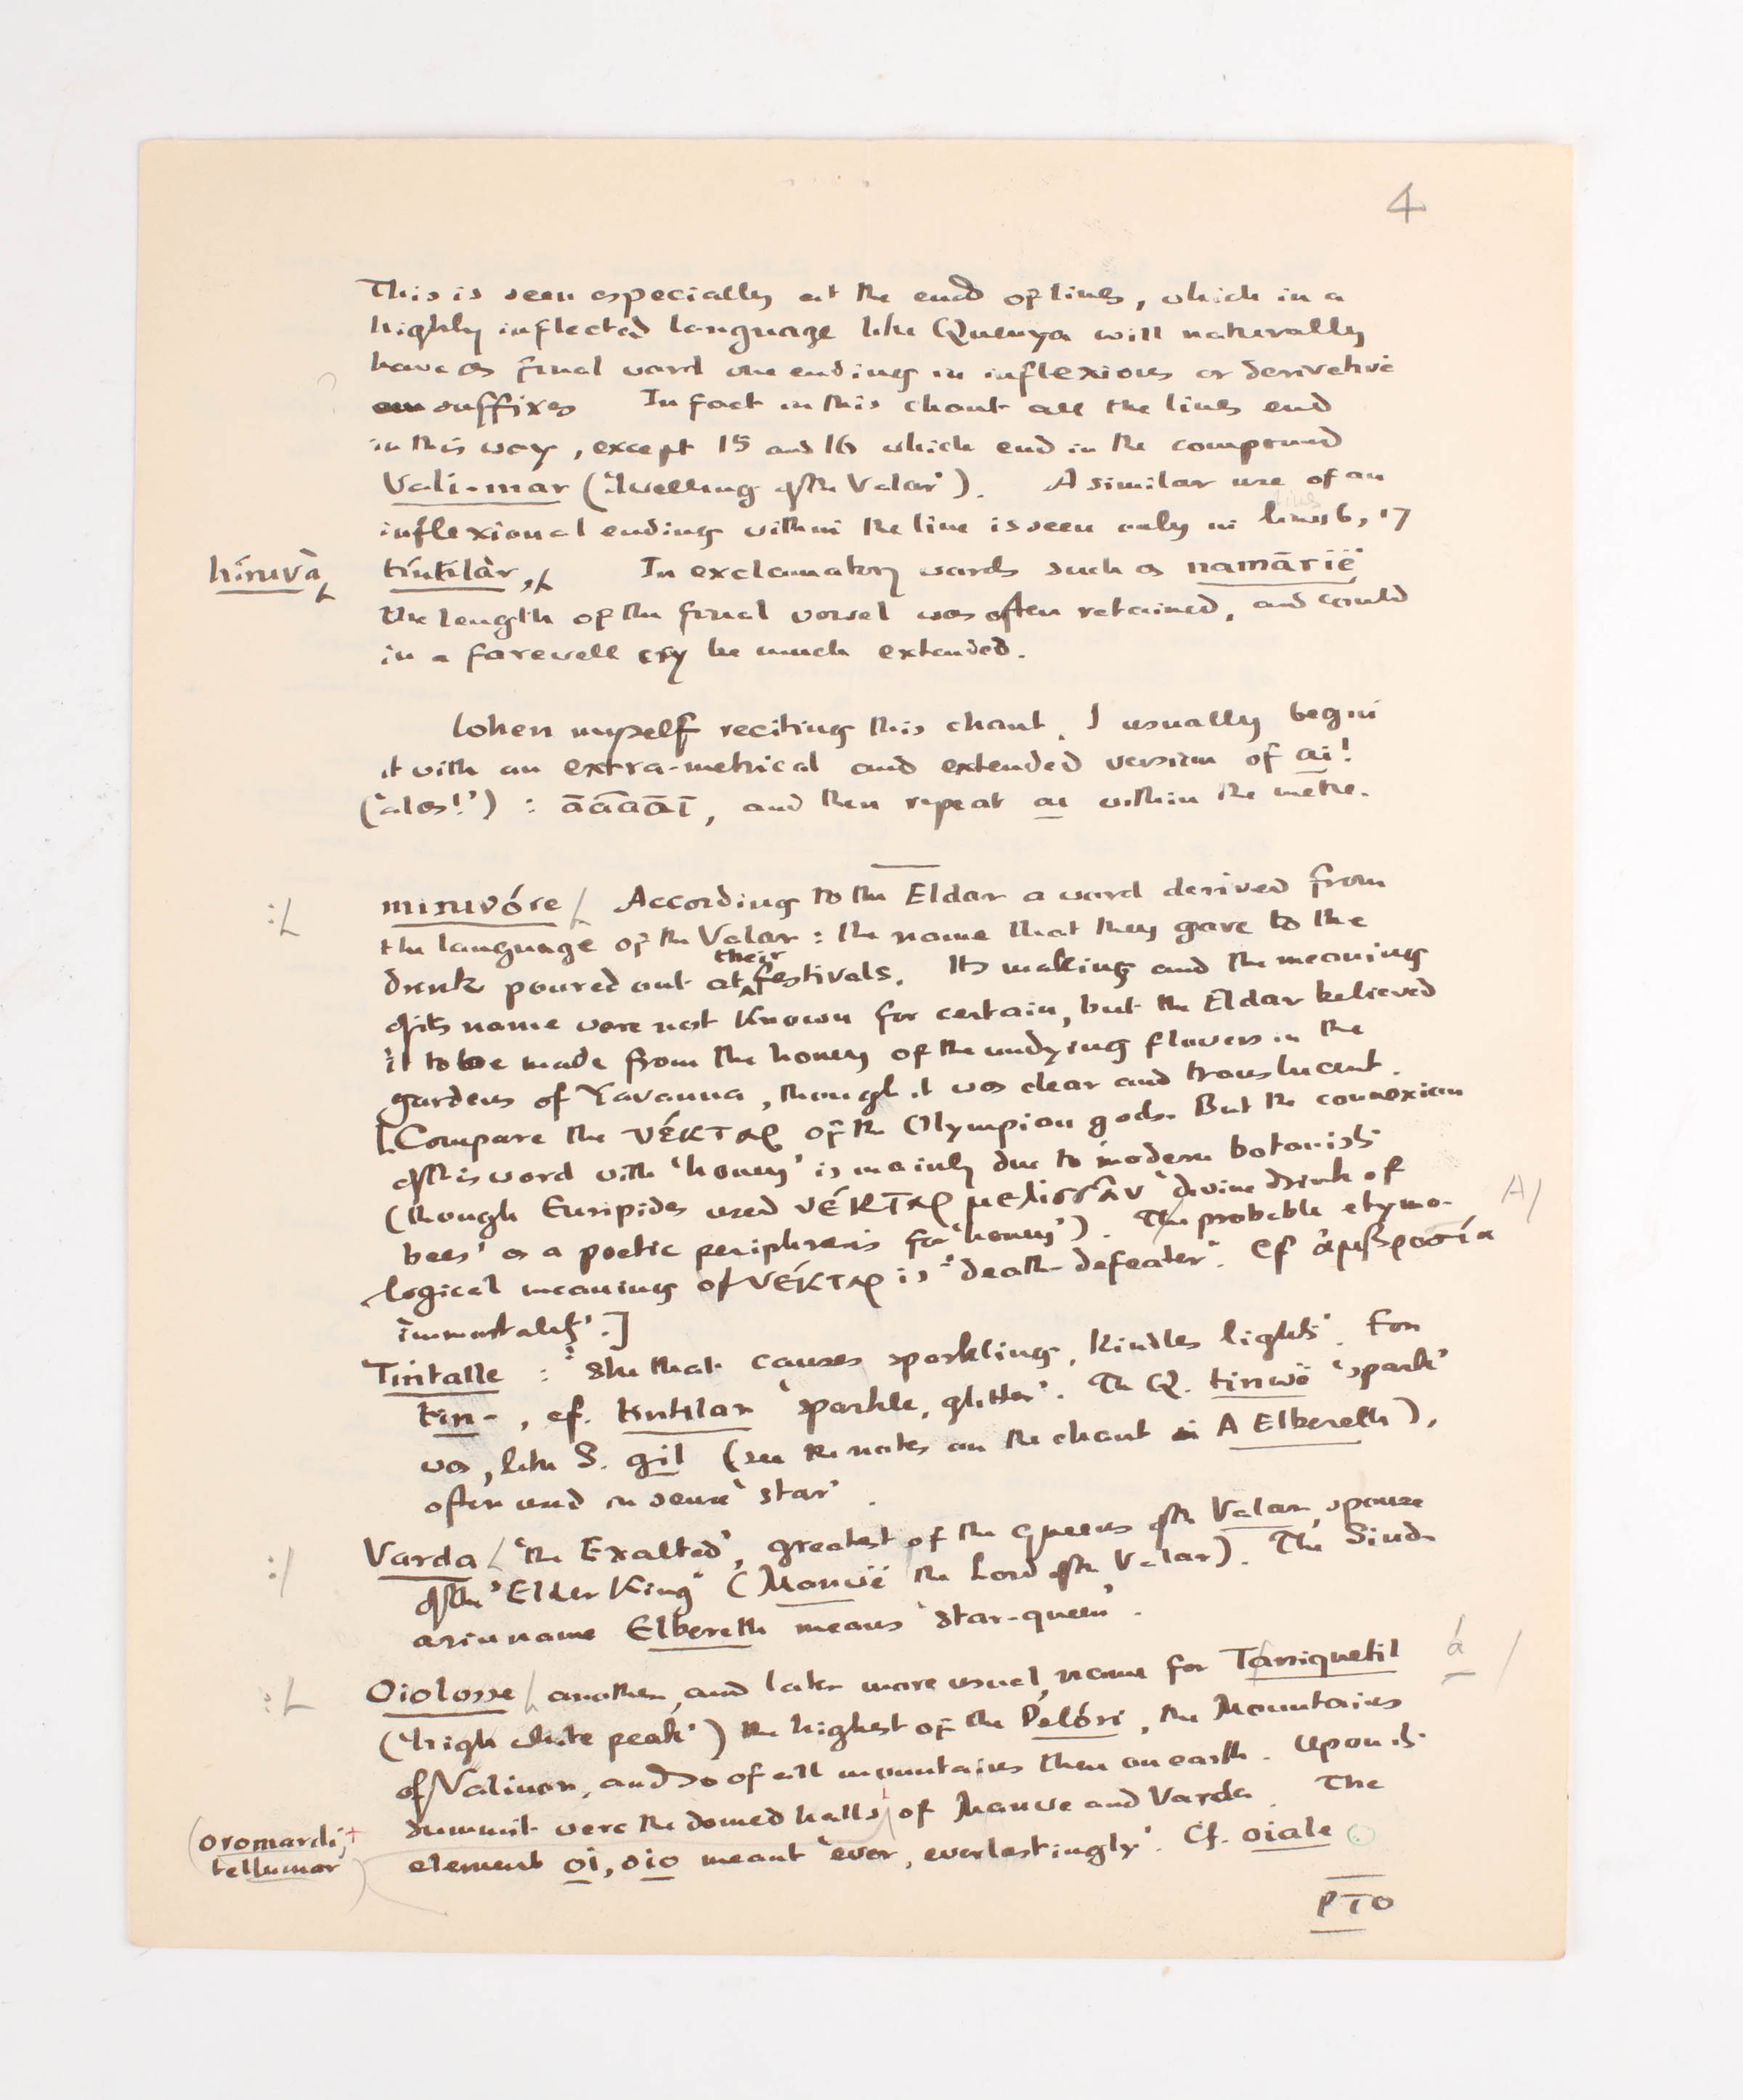 4
This is seen especially at the end of lines, which in a
highly inflected language like Quenya will naturally
have as final word one ending in inflexions or derivative
suffixes In fact in this chant all the lines end
in this way, except 15 and 16 which end in the compound
Vali-mar ('dwelling of the Valar'). A similar use of an
inflexional ending within the line is seen only in lines 6, 17
híruvà tíntilàr, In exclamatory words such as namárië
the length of the final vowel was often retained, and could
in a farewell cry be much extended.
When myself reciting this chant, I usually begin
it with an extra-metrical and extended version of ai!
('alas!') : āāāāī, and then repeat ai within the metre.
: miruvóre / According to the Eldar a word derived from
the language of the Valar : the name that they gave to the
drink poured out at their festivals. Its making and the meaning
of its name were not known for certain, but the Eldar believed
it to be made from the honey of the undying flowers in the
gardens of Yavanna, though it was clear and translucent.
[Compare the νέκταρ of the Olympian gods. But the connexion
of this word with 'honey' is mainly due to modern botanists
(though Euripides used νέκταρ μελισσᾶν 'divine drink of
bees' as a poetic periphrasis for 'honey'). The probable etymo- A/
logical meaning of νέκταρ is "death-defeater". Cf ἀμβροσία
'immortality'.]
Tintalle : 'She that causes sparkling, kindles lights'. For
tin-, cf. tintilar 'sparkle, glitter'. The Q. tinwë 'spark'
was, like S. gil (see the notes on the chant A Elbereth),
often used in sense 'star'.
:/ Varda / 'the Exalted', greatest of the queens of the Valar, spouse
of the "Elder King" (Manwë the Lord of the Valar). The Sind-
arin name Elbereth means 'star-queen'.
: Oiolosse / another, and later more usual, name for Taniquetil á /
('high white peak') the highest of the Pelóri, the Mountains
of Valinor, and so of all mountains then on earth. Upon its
summit were the domed halls of Manwe and Varda. The
(oromardi, tellumar) element oi, oio meant 'ever, everlastingly'. Cf. oiale
PTO